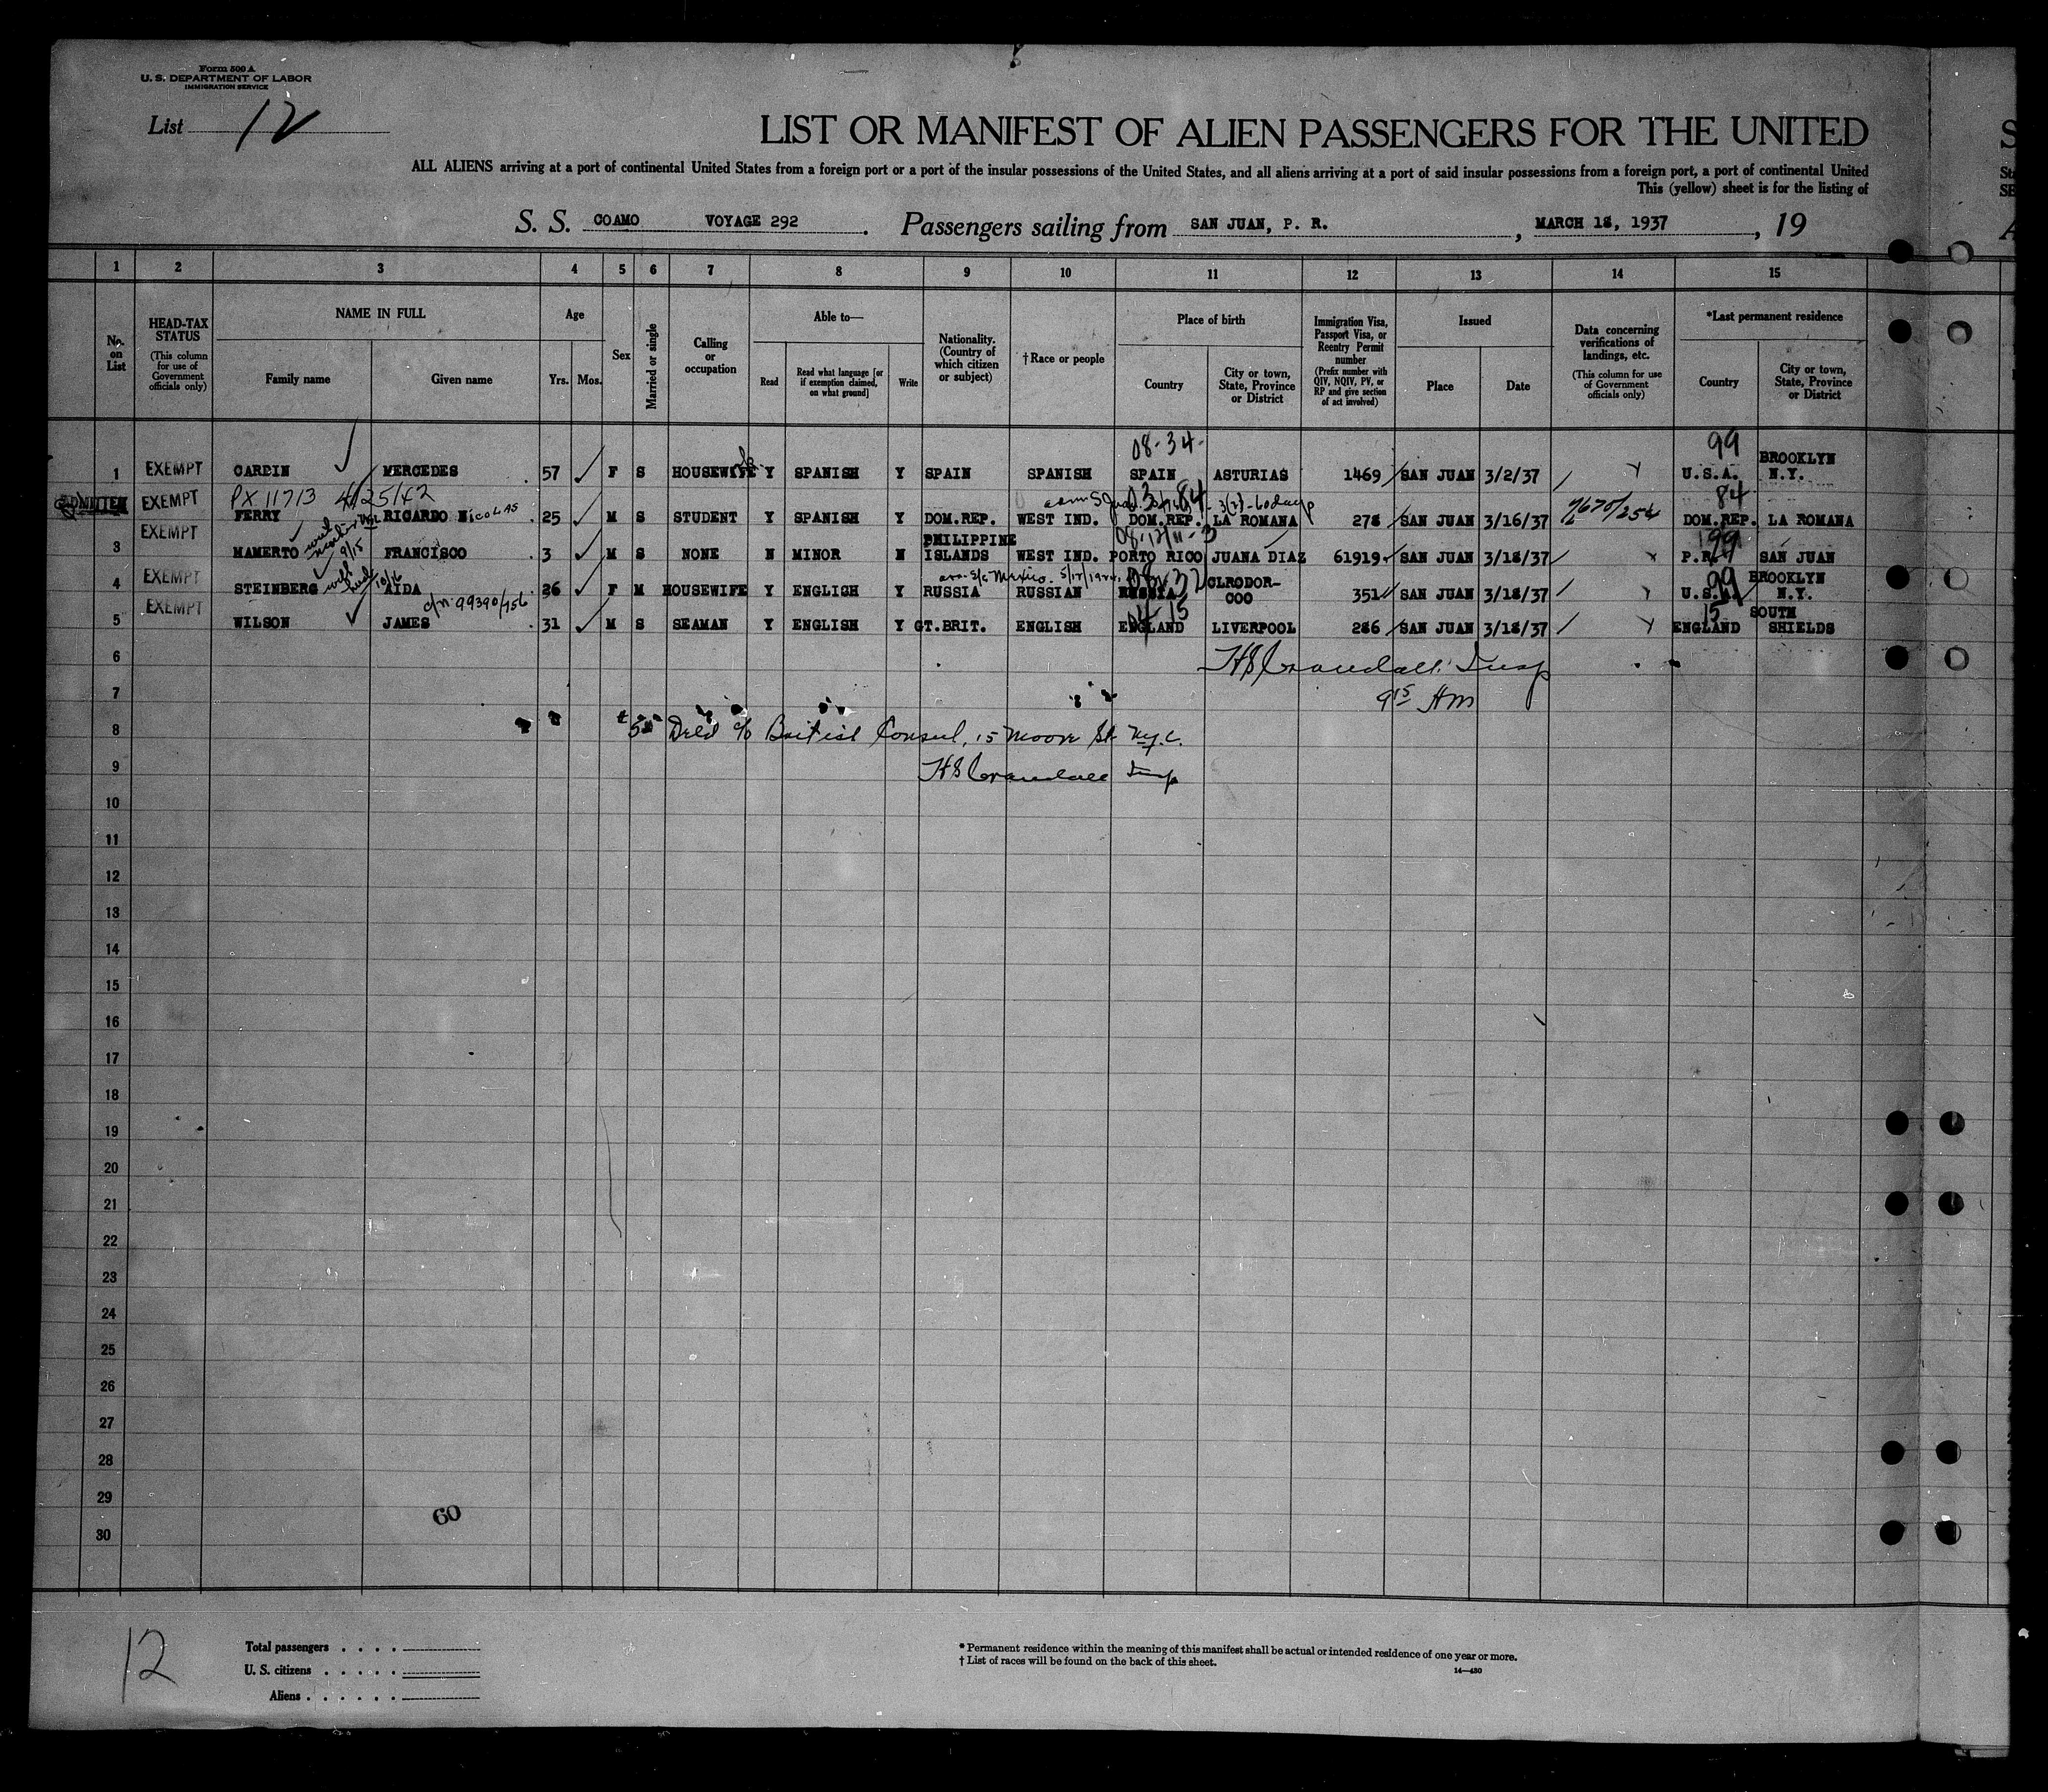 Form 500 A
U. S. DEPARTMENT OF LABOR
IMMIGRATION SERVICE
List 12
LIST OR MANIFEST OF ALIEN PASSENGERS FOR THE UNITED
ALL ALIENS arriving at a port of continental United States from a foreign port or a port of the insular possessions of the United States, and all aliens arriving at a port of said insular possessions from a foreign port, a port of continental United
This (yellow) sheet is for the listing of
S. S. COAMO VOYAGE 292. Passengers sailing from SAN JUAN, P. R., MARCH 18, 1937, 19
1 2 3 4 5 6 7 8 9 10 11 12 13 14 15
No. on List
HEAD-TAX STATUS (This column for use of Government officials only)
NAME IN FULL
Family name
Given name
Age
Yrs. Mos.
Sex
Married or single
Calling or occupation
Able to—
Read
Read what language [or if exemption claimed, on what ground]
Write
Nationality. (Country of which citizen or subject)
†Race or people
Place of birth
Country
City or town, State, Province or District
Immigration Visa, Passport Visa, or Reentry Permit number (Prefix number with QIV, NQIV, PV, or RP and give section of act involved)
Issued
Place
Date
Data concerning verifications of landings, etc. (This column for use of Government officials only)
*Last permanent residence
Country
City or town, State, Province or District
08-34- 99
1 EXEMPT CARDIN MERCEDES 57 F S HOUSEWIFE Y SPANISH Y SPAIN SPANISH SPAIN ASTURIAS 1469 SAN JUAN 3/2/37 U.S.A. BROOKLYN N.Y.
PX 11713 4/25/42 84
ADMITTED EXEMPT FERRY RICARDO Nicolas 25 M S STUDENT Y SPANISH Y DOM.REP. WEST IND. DOM.REP. LA ROMANA 278 SAN JUAN 3/16/37 DOM.REP. LA ROMANA
3 EXEMPT MAMERTO FRANCISCO 3 M S NONE N MINOR N PHILIPPINE ISLANDS WEST IND. PORTO RICO JUANA DIAZ 61919 SAN JUAN 3/18/37 P.R. SAN JUAN
4 EXEMPT STEINBERG AIDA 36 F M HOUSEWIFE Y ENGLISH Y RUSSIA RUSSIAN RUSSIA CLRODOR-COO 351 SAN JUAN 3/18/37 U.S.A. BROOKLYN N.Y.
c/n 99390/756
5 EXEMPT WILSON JAMES 31 M S SEAMAN Y ENGLISH Y GT.BRIT. ENGLISH ENGLAND LIVERPOOL 286 SAN JUAN 3/18/37 ENGLAND SOUTH SHIELDS
6 HS Crandall Insp
7 9 15 AM
8 5 Deld c/o British Consul, 15 Moore St N.Y.C.
9 HS Crandall Insp
10
11
12
13
14
15
16
17
18
19
20
21
22
23
24
25
26
27
28
29
30
60
12
Total passengers
U. S. citizens
Aliens
* Permanent residence within the meaning of this manifest shall be actual or intended residence of one year or more.
† List of races will be found on the back of this sheet.
14—430